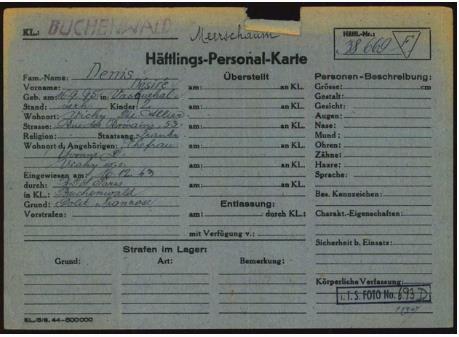 KL: BUCHENWALD
Meerschaum
HÄFTL.-Nr.:
38 669 F
Häftlings-Personal-Karte
Fam.-Name: Denis
Vorname: Désiré
Geb. am: 95 in
Stand: Kinder:
Wohnort: Vichy
Strasse: 53
Religion: Staatsang.
Wohnort d. Angehörigen: Ehefrau
Yvonne D.
Vichy w.o.
Eingewiesen am: 16.12.43
durch: Paris
in KL.: Buchenwald
Grund: Polit. Franzose
Vorstrafen:
Überstellt
am: an KL.
am: an KL.
am: an KL.
am: an KL.
am: an KL.
am: an KL.
Entlassung:
am: durch KL.:
mit Verfügung v.:
Personen-Beschreibung:
Grösse: cm
Gestalt:
Gesicht:
Augen:
Nase:
Mund:
Ohren:
Zähne:
Haare:
Sprache:
Bes. Kennzeichen:
Charakt.-Eigenschaften:
Sicherheit b. Einsatz:
Körperliche Verfassung:
Strafen im Lager:
Grund: Art: Bemerkung:
I.T.S. FOTO No.
KL/5/6. 44-500000